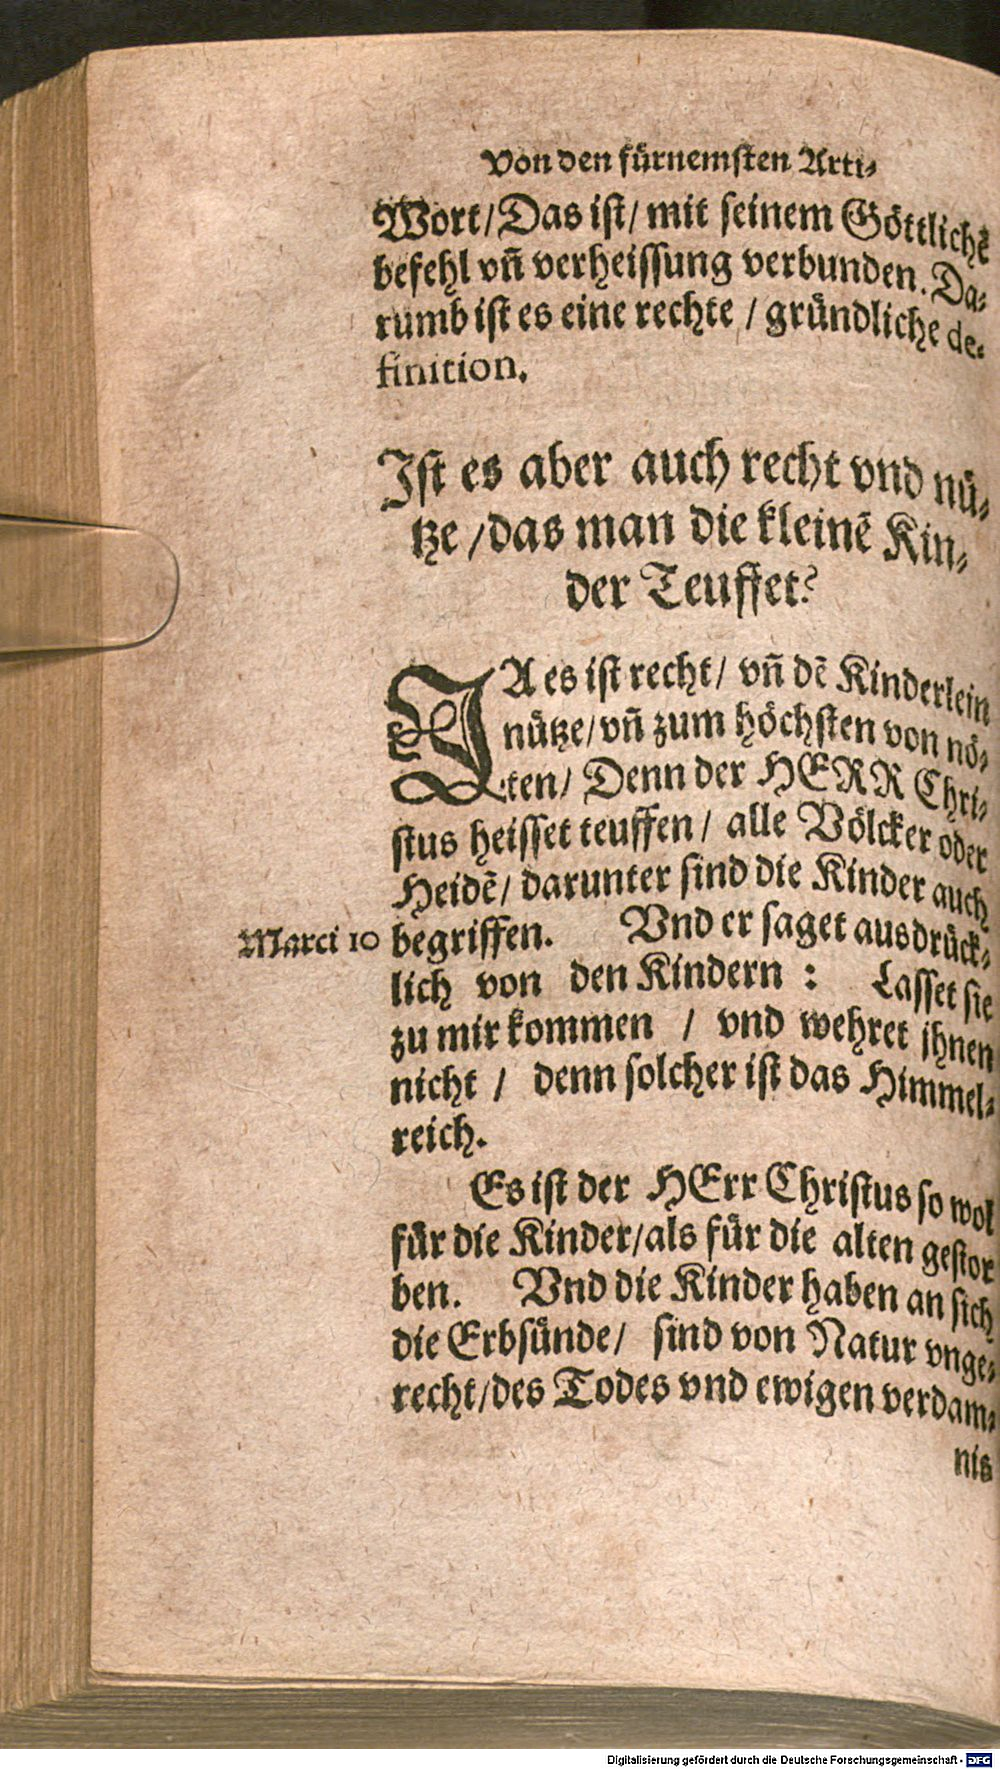 Von den fürnemsten Arti⸗
Wort/Das ist/ mit seinem Göttlichē
befehl vñ verheissung verbunden. Da⸗
rumb ist es eine rechte / gründliche de⸗
finition.
Ist es aber auch recht vnd nü⸗
tze /das man die kleinē Kin⸗
der Teuffet?
JA es ist recht/ vñ dē Kinderlein
nütze/vñ zum höchsten von nö⸗
ten/ Denn der HERR Chri⸗
stus heisset teuffen/ alle Völcker oder
Heidē/ darunter sind die Kinder auch
Marci 10 begriffen. Vnd er saget ausdrück⸗
lich von den Kindern : Lasset sie
zu mir kommen / vnd wehret ihnen
nicht / denn solcher ist das Himmel⸗
reich.
Es ist der HErr Christus so wol
für die Kinder/als für die alten gestor
ben. Vnd die Kinder haben an sich
die Erbsünde/ sind von Natur vnge⸗
recht/des Todes vnd ewigen verdam⸗
nis
Digitalisierung gefördert durch die Deutsche Forschungsgemeinschaft - DFG